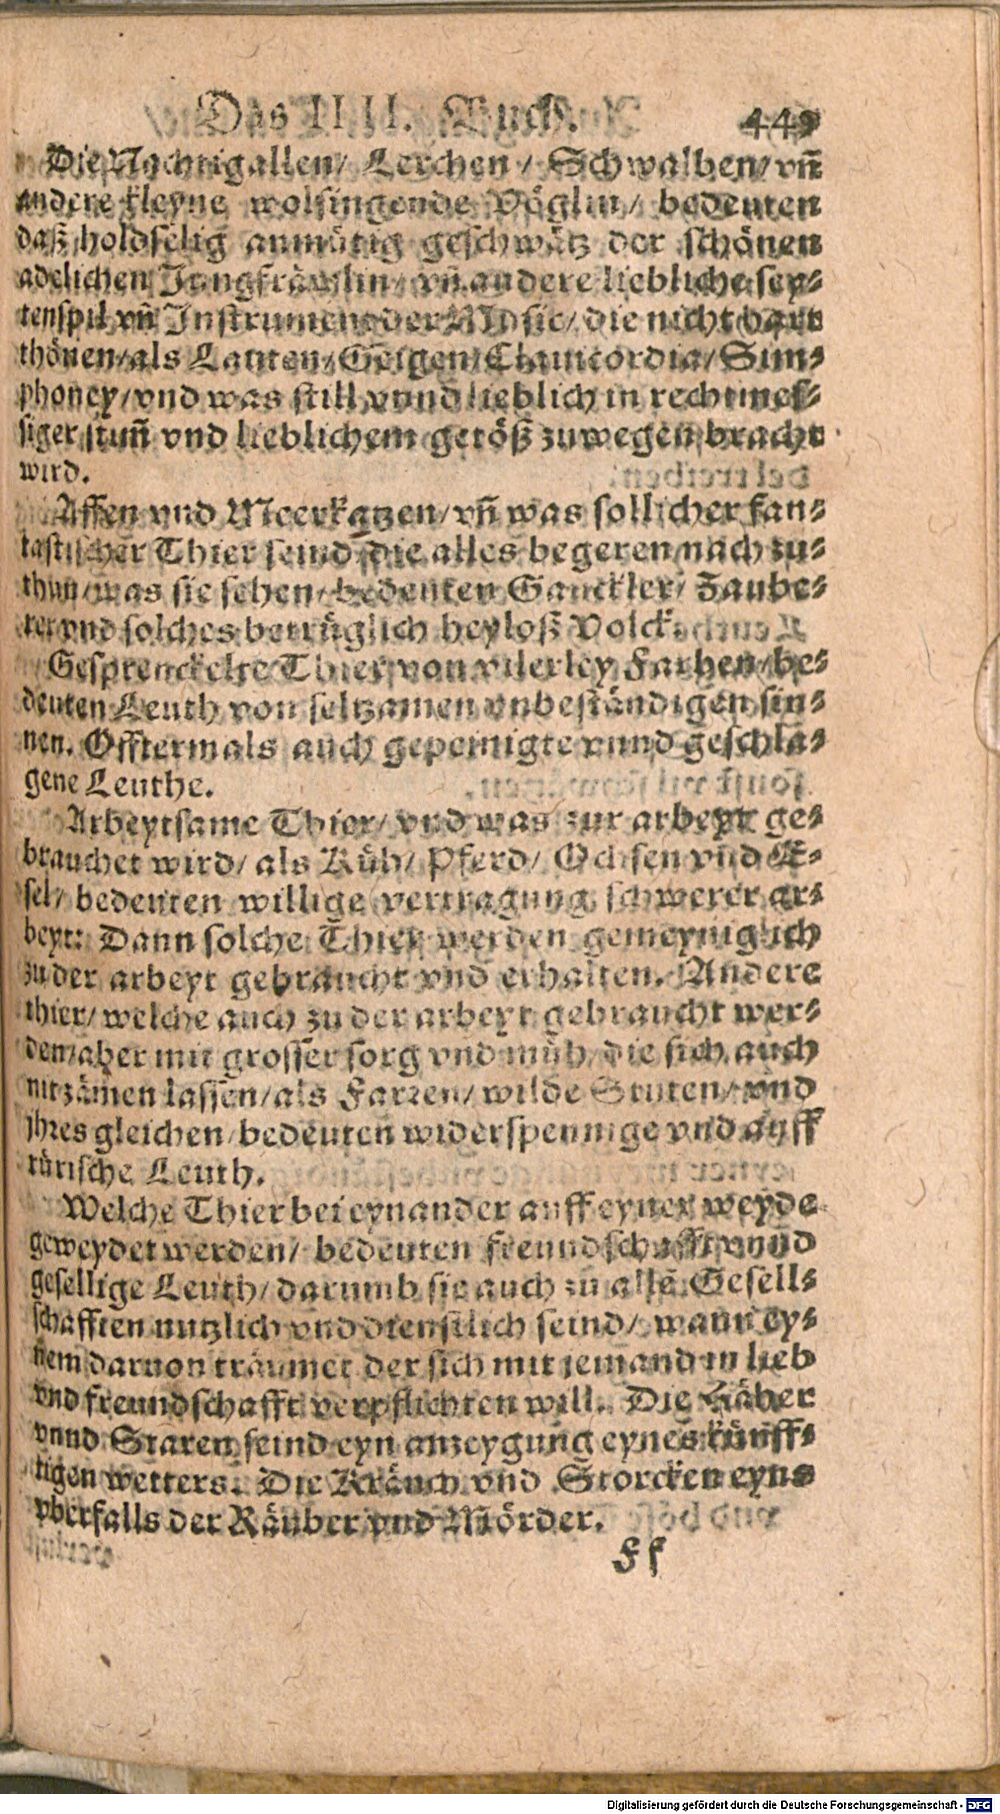 Das IIII. Buch. 449
Die Nachtigallen/ Lerchen/ Schwalben/ vñ
andere kleyne wolsingende Vöglin/ bedeuten
daß holdselig anmütig geschwätz der schönen
adelichen Jungfräwlin/ vñ andere liebliche sey⸗
tenspil vñ Instrument der Music/ die nicht hart
thönen/ als Lauten/ Geigen/ Clauicordia/ Sim⸗
phoney/ vnd was still vnnd lieblich in rechtmes⸗
siger stuñ vnd lieblichem getöß zuwegen bracht
wird.
Affen vnd Meerkatzen/ vñ was sollicher fan⸗
tastischer Thier seind/ die alles begeren nach zu⸗
thun/ was sie sehen/ bedeuten Gauckler/ Zaube⸗
rer vnd solches betrüglich heyloß Volck.
Gesprenckelte Thier von vilerley Farben/ be⸗
deuten Leuth von seltzamen vnbeständigen sin⸗
nen. Offtermals auch gepeinigte vnnd geschla⸗
gene Leuthe.
Arbeytsame Thier/ vnd was zur arbeyt ge⸗
brauchet wird/ als Küh/ Pferd/ Ochsen vnd E⸗
sel/ bedeuten willige vertragung schwerer ar⸗
beyt: Dann solche Thier werden gemeyniglich
zu der arbeyt gebraucht vnd erhalten. Andere
thier/ welche auch zu der arbeyt gebraucht wer⸗
den/ aber mit grosser sorg vnd müh/ die sich auch
nit zämen lassen/ als Farren/ wilde Stuten/ vnd
jhres gleichen/ bedeuten widerspennige vnd auff
rürische Leuth.
Welche Thier bei eynander auff eyner weyde
geweydet werden/ bedeuten freundschafft vnnd
gesellige Leuth/ darumb sie auch zu allẽ Gesell⸗
schafften nutzlich vnd dienstlich seind/ wann ey⸗
nem daruon träumet der sich mit jemand in lieb
vnd freundschafft verpflichten will. Die Häher
vnnd Staren seind eyn anzeygung eynes künff⸗
tigen wetters. Die Kränch vnd Storcken eyns
vberfalls der Räuber vnd Mörder.
Ff
Digitalisierung gefördert durch die Deutsche Forschungsgemeinschaft - DFG